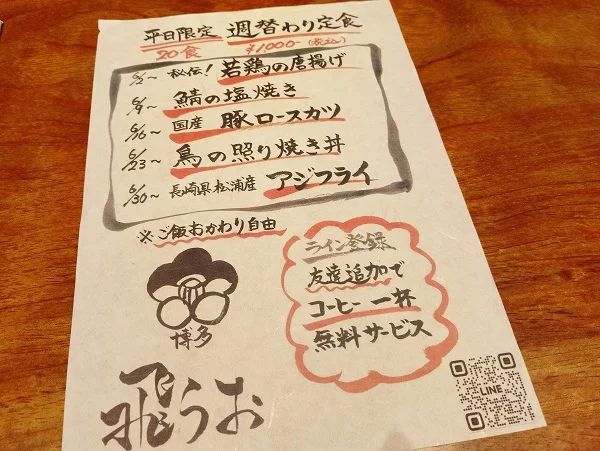 平日限定 週替わり定食
20食 ¥1000-(税込)
6/2~ 秘伝!若鶏の唐揚げ
6/9~ 鯖の塩焼き
6/16~ 国産 豚ロースカツ
6/23~ 鳥の照り焼き丼
6/30~ 長崎県松浦産 アジフライ
※ご飯おかわり自由
ライン登録
友達追加で
コーヒー一杯
無料サービス
博多
飛うお
LINE